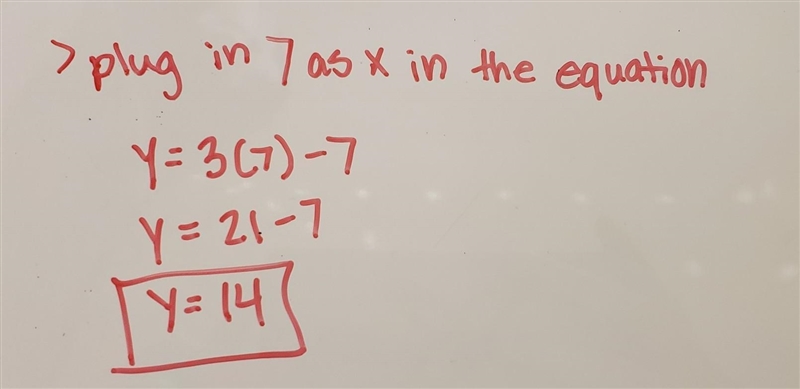 > plug in 7 as x in the equation
y = 3(7) - 7
y = 21 - 7
y = 14